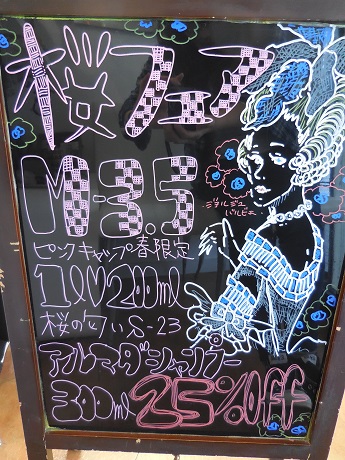 桜フェア
M-3.5
ジョルジュ
バルビエ
ピンクキャップ春限定
1ℓ 200ml
桜の匂いS-23
アルマダシャンプー
300ml 25%off